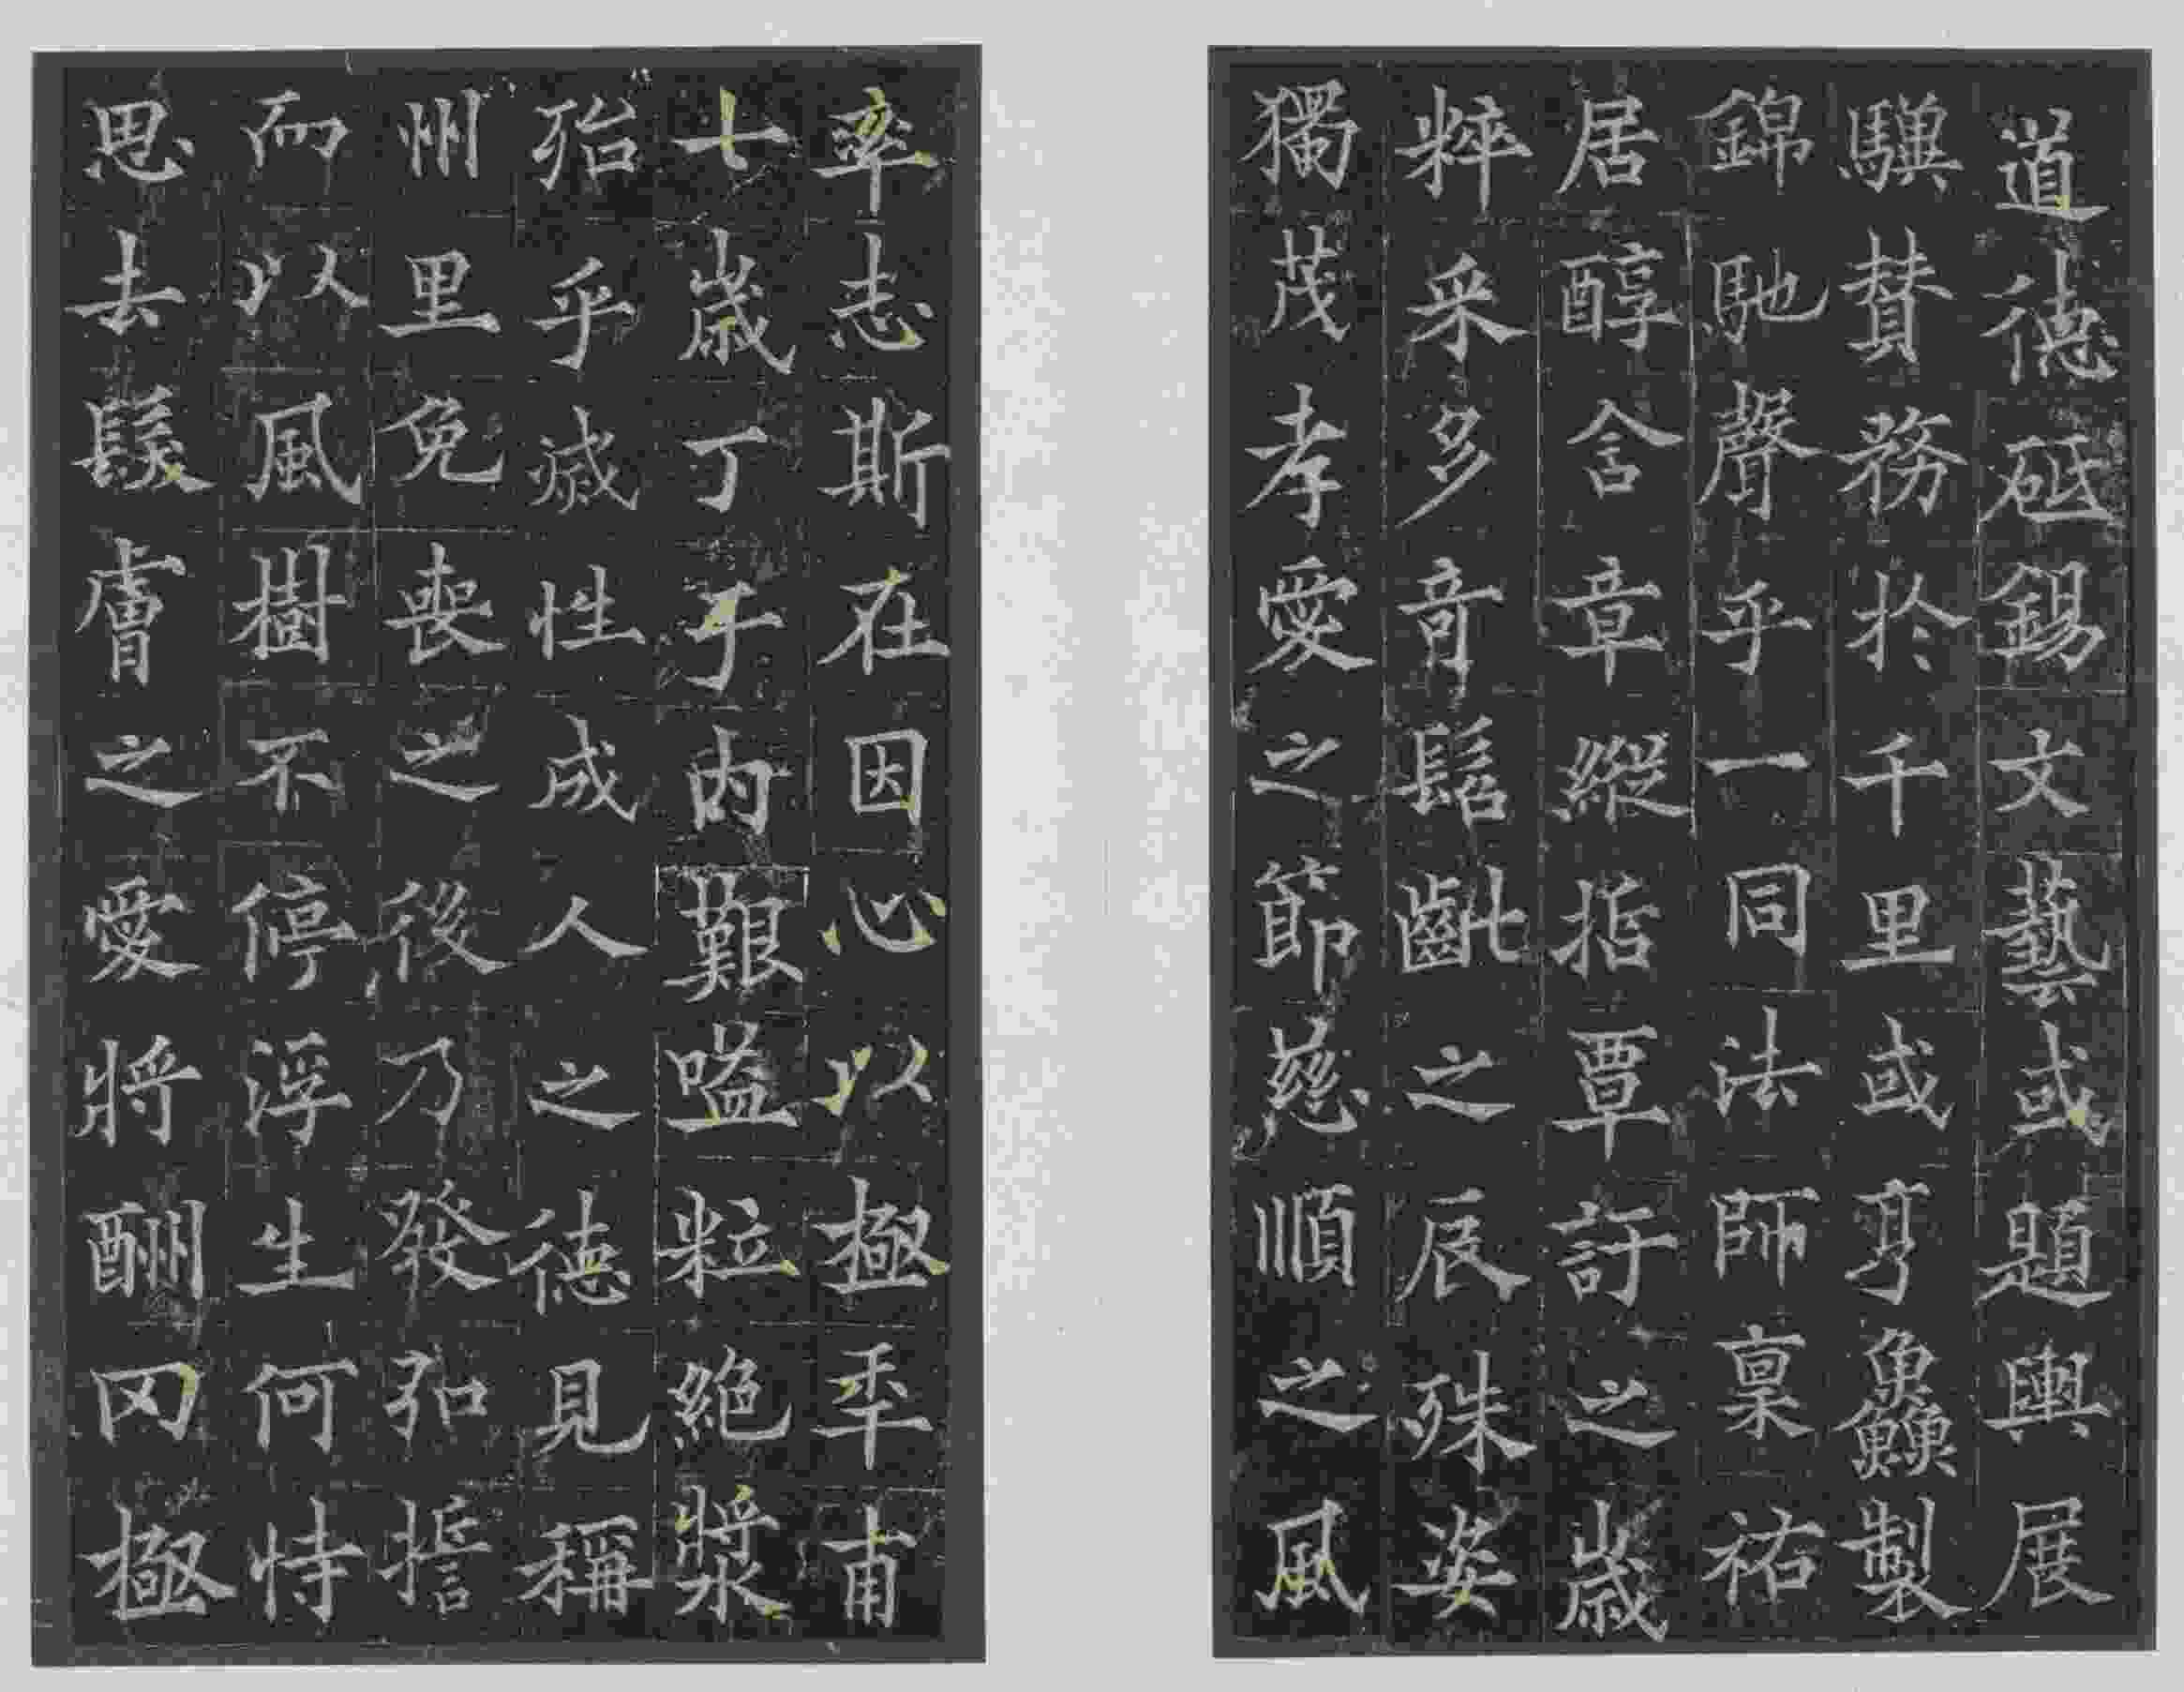 道德砥礪錫文藝或題輿展
驥贊務於千里或亨鱻製
錦馳聲乎一同法師稟祐
居醇含章縱指覃訏之歲
粹采多奇髫齔之辰殊姿
獨茂孝愛之節慈順之風
率志斯在因心以極年甫
七歲丁于內艱嗌粒絕漿
殆乎滅性成人之德見稱
州里免喪之後乃發弘擔
而以風樹不停浮生何恃
思去髮膚之愛將酬罔極